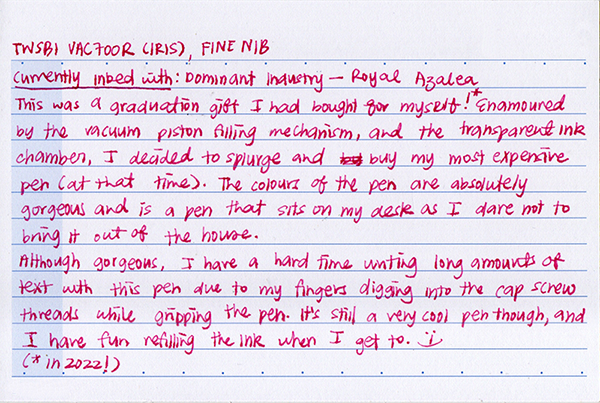 TWSBI VAC700R (IRIS), FINE NIB
Currently inked with: Dominant Industry — Royal Azalea
This was a graduation gift I had bought for myself!* Enamoured
by the vacuum piston filling mechanism, and the transparent ink
chamber, I decided to splurge and buy my most expensive
pen (at that time). The colours of the pen are absolutely
gorgeous and is a pen that sits on my desk as I dare not to
bring it out of the house.
Although gorgeous, I have a hard time writing long amounts of
text with this pen due to my fingers digging into the cap screw
threads while gripping the pen. It's still a very cool pen though, and
I have fun refilling the ink when I get to. :)
(*in 2022!)